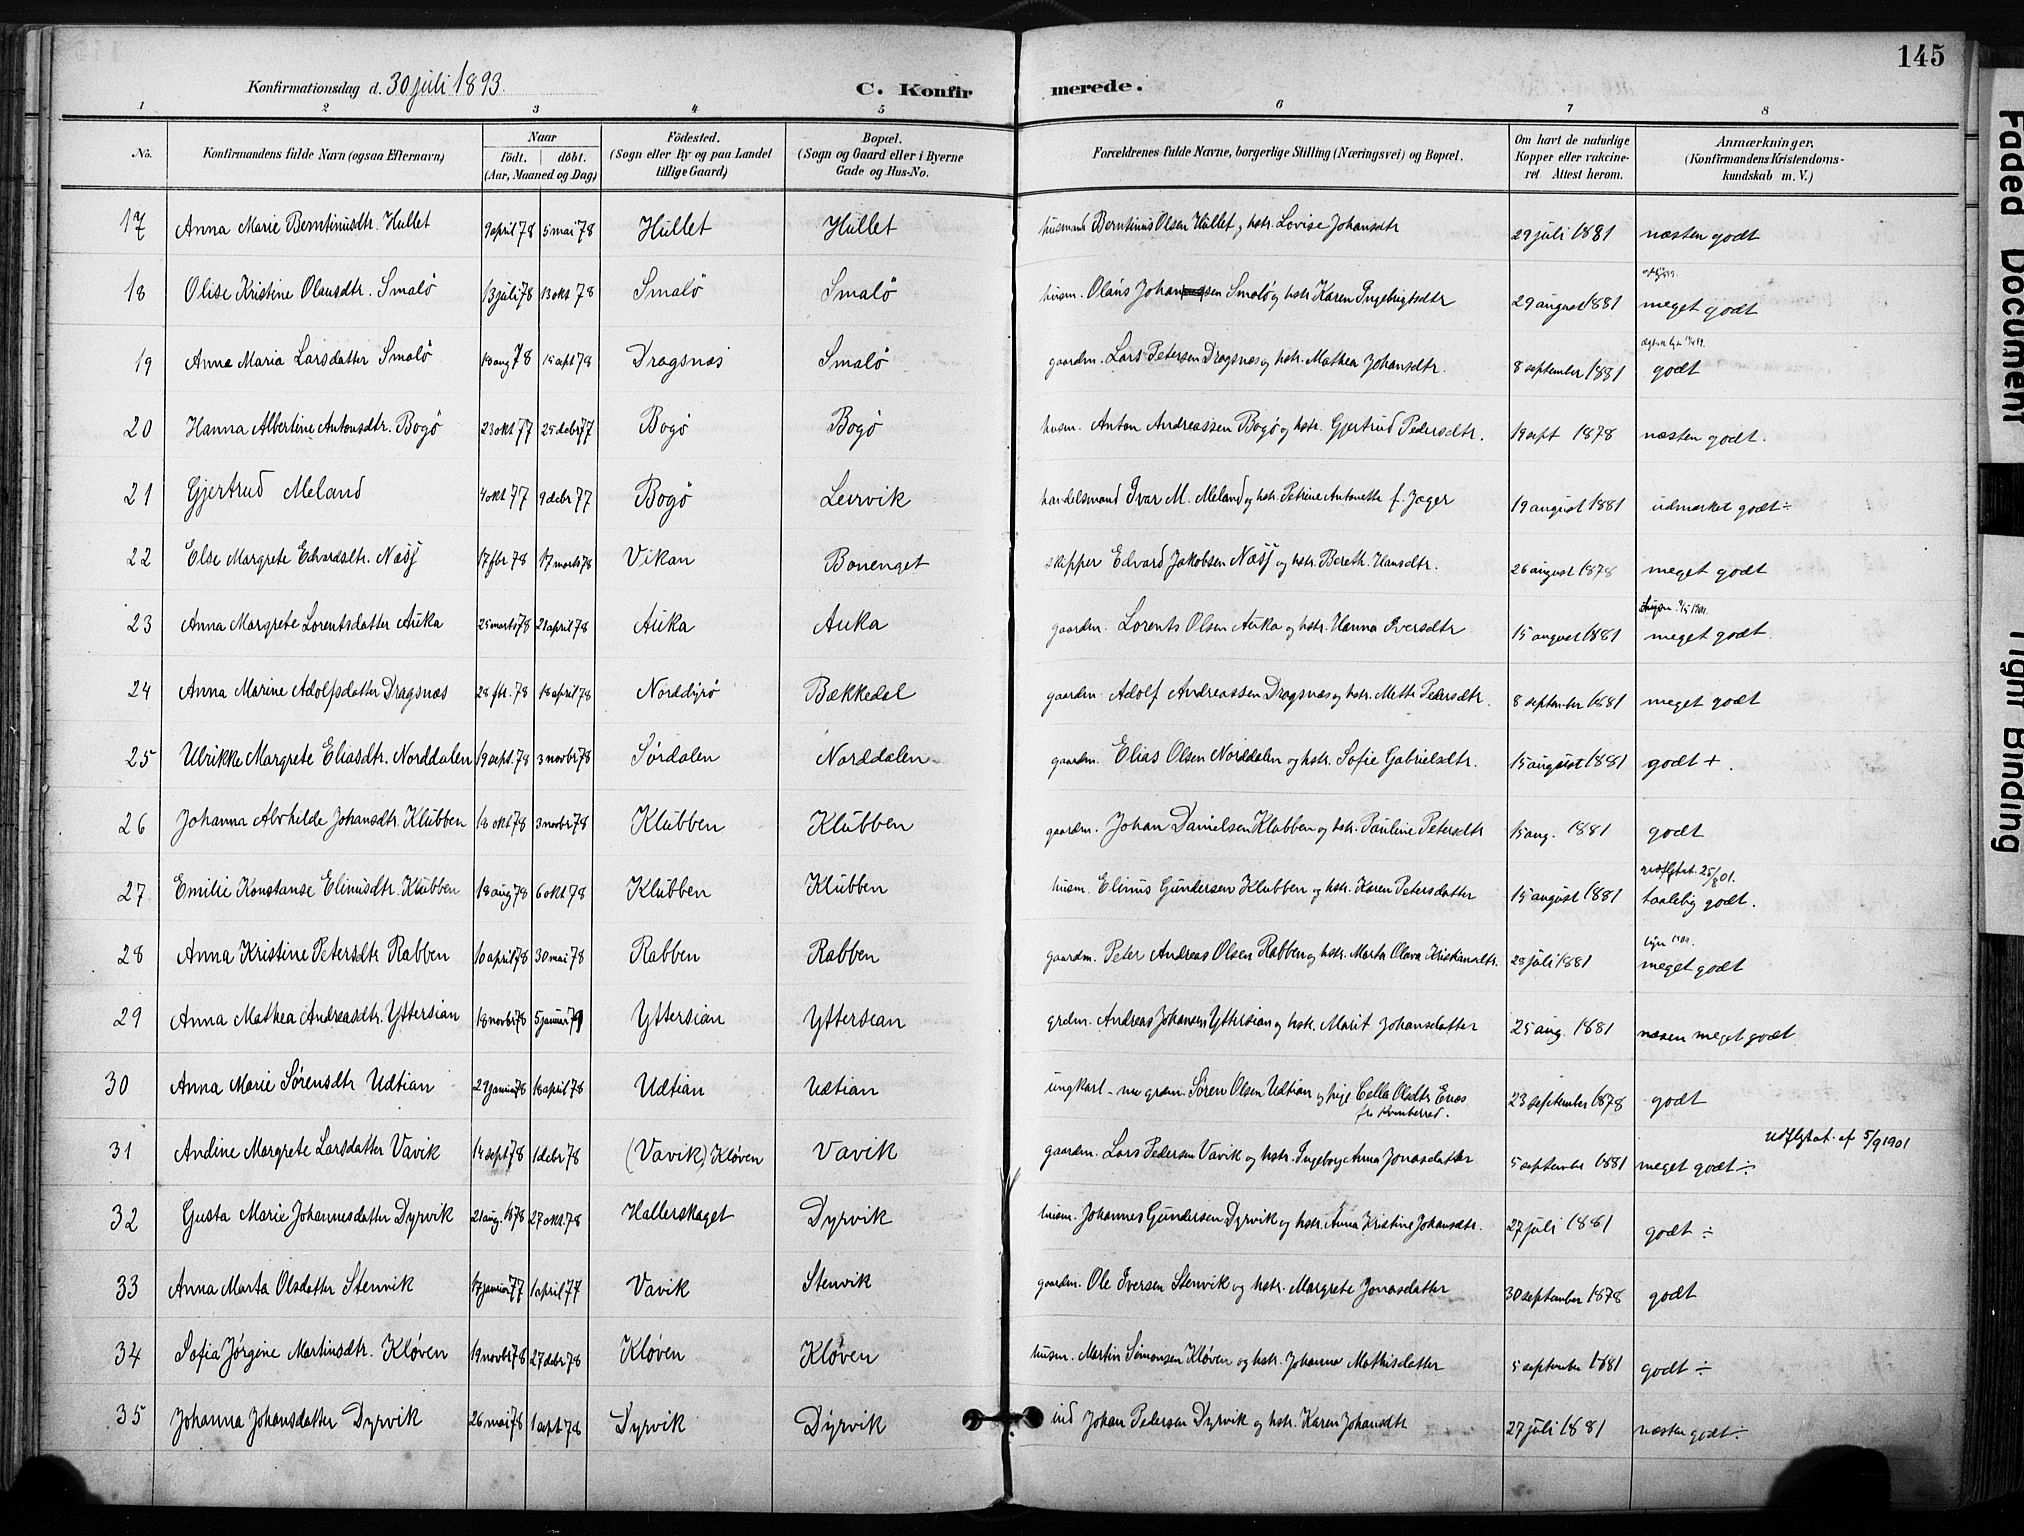 145
Konfirmationsdag d. 30 juli 1893. C. Konfirmerede.
1 2 3 4 5 6 7 8
No. Konfirmandens fulde Navn (ogsaa Efternavn) Naar født. døbt. (Aar, Maaned og Dag) Födested. (Sogn eller By og paa Landet tillige Gaard) Bopæl. (Sogn og Gaard eller i Byerne Gade og Hus-No. Forældrenes fulde Navne, borgerlige Stilling (Næringsvei) og Bopæl. Om havt de naturlige Kopper eller vakcineret Attest herom. Anmærkninger, (Konfirmandens Kristendomskundskab m. V.)
17 Anna Marie Berntinusdtr. Hullet 9 april 78 5 mai 78 Hullet Hullet husmand Berntinus Olsen Hullet og hstr. Lovise Johansdtr 29 juli 1881 næsten godt
18 Olise Kristine Olausdtr. Smalö 13 juli 78 13 okt 78 Smalö Smalö husm. Olaus Johansen Smalö og hstr Karen Ingebrigtsdtr 29 august 1881 meget godt
19 Anna Maria Larsdatter Smalö 18 aug 78 15 spt 78 Dragsnæs Smalö gaardm. Lars Petersen Dragsnæs og hstr. Mathea Johansdtr. 8 september 1881 godt
20 Hanna Albertine Antonsdtr. Bogö 23 okt 77 25 debr 77 Bogö Bogö husm. Anton Andreassen Bogö og hstr. Gjertrud Pedersdtr. 19 sept 1878 næsten godt.
21 Gjertrud Meland 4 okt 77 9 debr 77 Bogö Leirvik handelsmand Ivar M. Meland og hstr. Petrine Antonette f. Jæger 19 august 1881 udmærket godt ÷
22 Else Margrete Edvardsdtr. Næss 17 fbr 78 17 marts 78 Vikan Bonenget skipper Edvard Jakobsen Næss og hstr. Bereth. Hansdtr. 26 august 1878 meget godt
23 Anna Margrete Lorentsdatter Auka 25 marts 78 21 april 78 Auka Auka gaardm. Lorents Olsen Auka og hstr. Hanna Iversdtr 15 august 1881 meget godt.
24 Anna Marine Adolfsdatter Dragsnæs 28 fbr. 78 18 april 78 Norddyrö Bækkedal gaardm. Adolf Andreassen Dragsnæs og hstr. Mette Pedersdtr. 8 september 1881 meget godt
25 Ulrikke Margrete Eliasdtr. Norddalen 19 sept. 78 3 novbr 78 Sørdalen Norddalen gaardm. Elias Olsen Norddalen og hstr. Sofie Gabrielsdtr. 15 august 1881 godt +.
26 Johanna Alvhilde Johansdtr. Klubben 18 okt 78 3 novbr 78 Klubben Klubben gaardm. Johan Danielsen Klubben og hstr. Pauline Petersdtr 15 aug. 1881 godt
27 Emilie Konstanse Elinusdtr. Klubben 18 aug 78 6 okt 78 Klubben Klubben husm. Elinus Gundersen Klubben og hstr. Karen Petersdatter 15 august 1881 udflytat. 25/8 01. taalelig godt.
28 Anna Kristine Petersdtr Rabben 10 april 78 30 mai 78 Rabben Rabben gaardm. Peter Andreas Olsen Rabben og hstr. Marta Olava Kristiansdtr. 28 juli 1881 meget godt
29 Anna Mathea Andreasdtr. Yttersian 18 novbr 78 5 januar 79 Yttersian Yttersian grdm. Andreas Johansen Yttersian og hstr. Marit Johansdatter 25 aug. 1881 næsen meget godt
30 Anna Marie Sørensdtr Udtian 29 januar 78 18 april 78 Udtian Udtian ungkarl - nu grdm. Sören Olsen Udtian og pige Cella Olsdtr Enæs
fra Kvinherred.
23 september 1878 godt
31 Andine Margrete Larsdatter Vavik 14 sept 78 1 debr 78 (Vavik) Kløven Vavik gaardm. Lars Pedersen Vavik og hstr. Ingeborg Anna Jonasdatter 5 september 1881 meget godt ÷ udflytat. af 5/9 1901
32 Gusta Marie Johannesdatter Dyrvik 21 aug. 1878 27 okt. 78 Hallerskaget Dyrvik husm. Johannes Gundersen Dyrvik og hstr. Anna Kristine Johansdtr. 27 juli 1881 godt ÷
33 Anna Marta Olsdatter Stenvik 17 januar 77 1 april 77 Vavik Stenvik gaardm. Ole Iversen Stenvik og hstr. Margrete Jonasdatter 30 september 1878 godt
34 Sofia Jørgine Martinsdtr. Kløven 19 novbr 78 27 debr 78 Kløven Kløven husm. Martin Simonsen Kløven og hstr. Johanna Mathisdatter 5 september 1881 godt ÷
35 Johanna Johansdatter Dyrvik 26 mai 78 1 spt 78 Dyrvik Dyrvik ind Johan Pedersen Dyrvik og hstr. Karen Johansdtr 27 juli 1881 næsten godt ÷
Faded Document
Tight Binding